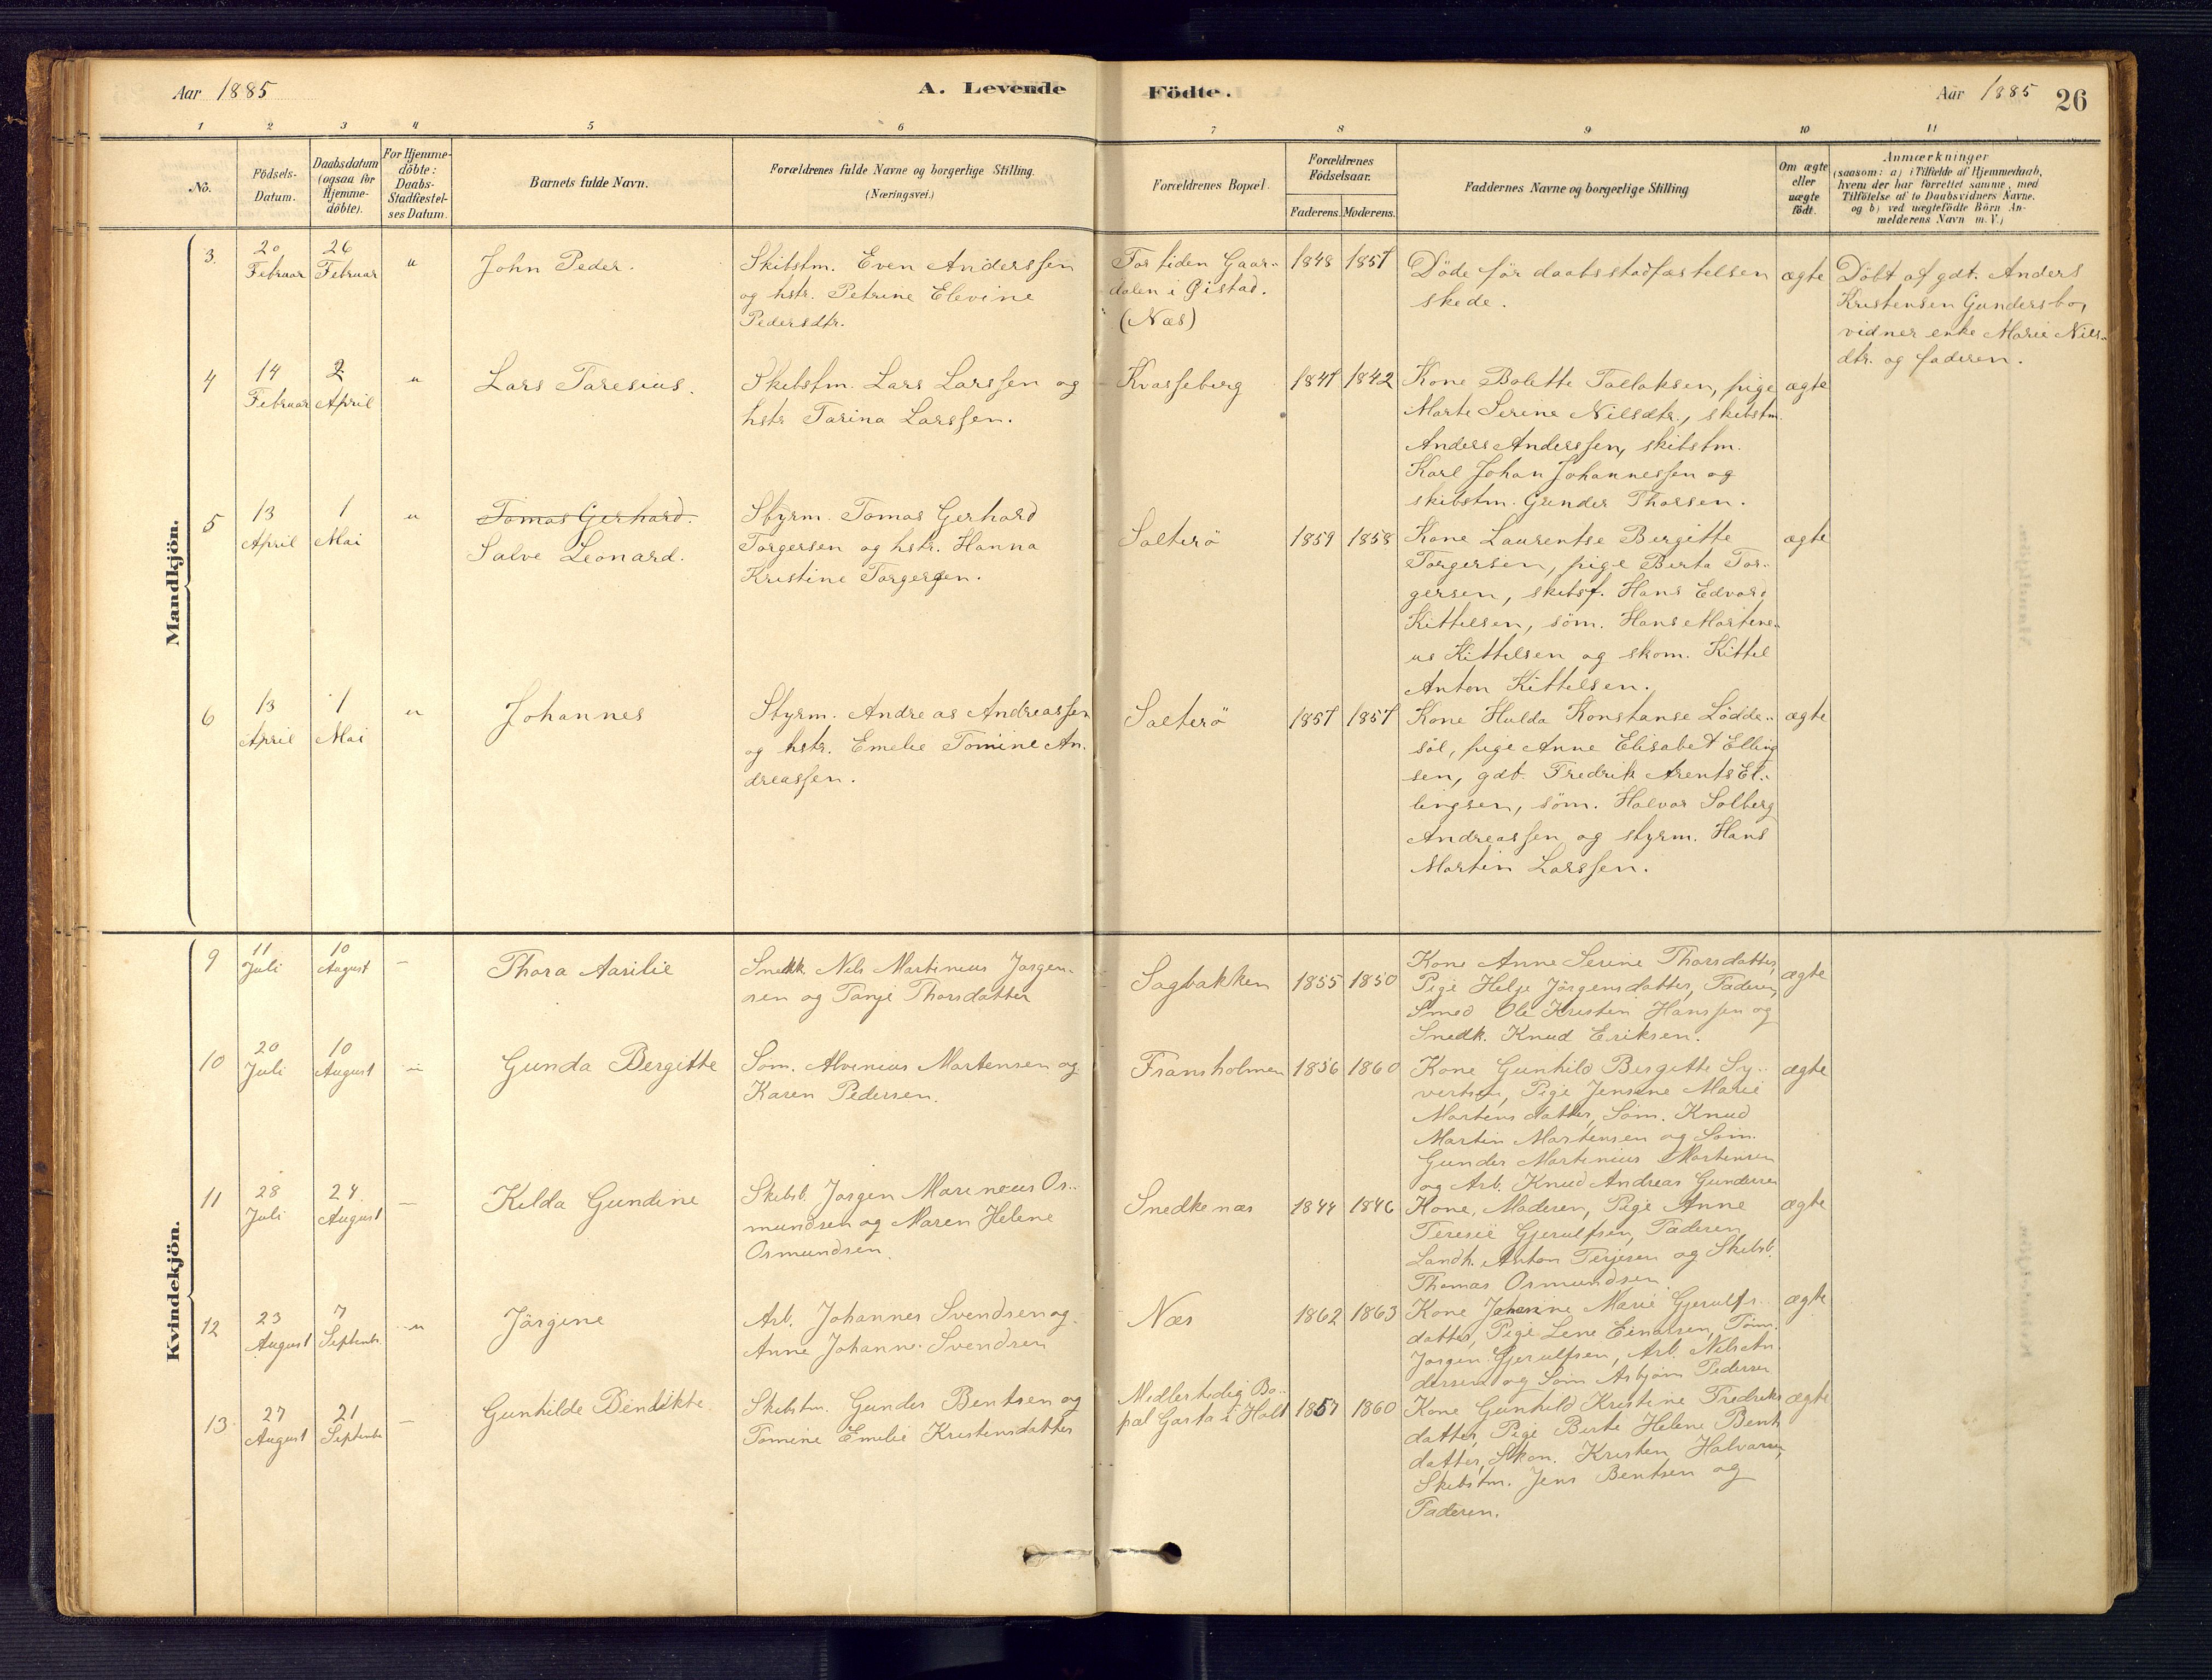 Aar 1885
A. Levende
Födte.
Aar 1885
26
1 2 3 4 5 6 7 8 9 10 11
No.
Födsels-
Datum.
Daabsdatum
(ogsaa for
Hjemme-
döbte).
For Hjemme-
döbte:
Daabs-
Stadfæstel-
ses Datum.
Barnets fulde Navn.
Forældrenes fulde Navne og borgerlige Stilling.
(Næringsvei.)
Forældrenes Bopæl.
Forældrenes
Födselsaar.
Faderens. Moderens.
Faddernes Navne og borgerlige Stilling
Om ægte
eller
uægte
födt.
Anmærkninger
(saasom: a) i Tilfælde af Hjemmedaab,
hvem der har forrettet samme, med
Tilföielse af to Daabsvidners Navne.
og b) ved uægtefödte Börn An-
melderens Navn m. V.)
Mandkjön.
3.
20
Februar
26
Februar
"
John Peder.
Skibstm. Even Anderssen
og hstr. Petrine Elevine
Pedersdtr.
For tiden Gaar-
dalen i Øistad.
(Næs)
1848 1857
Døde før daabsstadfæstelsen
skede.
ægte
Døbt af gdt. Anders
Kristensen Gundersbo,
vidner enke Marie Nils-
dtr. og faderen.
4
14
Februar
2
April
"
Lars Taresius.
Skibstm. Lars Larssen og
hstr Tarina Larssen.
Kvasseberg
1847 1842
Kone Bolette Tallaksen, pige
Marte Serine Nilsdtr., skibstm.
Anders Anderssen, skibstm.
Karl Johan Johannessen og
skibstm. Gunder Thorsen.
ægte
5
13
April
1
Mai
"
Tomas Gerhard.
Salve Leonard.
Styrm. Tomas Gerhard
Torgersen og hstr. Hanna
Kristine Torgersen.
Salterø
1859 1858
Kone Laurentse Birgitte
Torgersen, pige Berta Tor-
gersen, skibsf. Hans Edvard
Kittelsen, søm. Hans Martin-
us Kittelsen og skom. Kittel
Anton Kittelsen.
ægte
6
13
April
1
Mai
"
Johannes
Styrm. Andreas Andreassen
og hstr. Emelie Tomine An-
dreassen.
Salterø
1857 1857
Kone Hulda Konstanse Lødde-
søl, pige Anne Elisabet Elling
sen, gdt. Fredrik Arents El-
lingsen, søm. Halvor Solberg
Andreassen og styrm. Hans
Martin Larssen.
ægte
Kvindekjön.
9
11
Juli
10
August
—
Thora Aasilie
Snedk. Nils Martinius Jorgen-
sen og Tonje Thorsdatter
Sagbakken
1855 1850
Kone Anne Serine Thorsdatter,
Pige Helje Jörgensdatter, Faderen,
Smed Ole Kristin Hanssen og
Snedk. Knud Eriksen.
ægte
10
20
Juli
10
August
"
Gunda Bergitte
Søm. Alvinius Martensen og
Karen Pedersen.
Fransholmen
1856 1860
Kone Gunhild Birgitte Sy-
vertsen, Pige Jensine Marie
Martinsdatter, Søm. Knud
Martin Martensen og Søm.
Gunder Martinius Martensen
og Arb. Knud Andreas Gundersen
ægte
11
28
Juli
24
August
—
Kilda Gundine
Skibsb. Jorgen Marineus Os-
mundsen og Maren Helene
Osmundsen.
Snedkenæs
1844 1846
Kone, Moderen, Pige Anne
Teresie Gjerulfsen, Faderen,
Landh. Anton Terjesen og Skibsb.
Thomas Osmundsen.
ægte
12
23
August
7
Septembr.
"
Jörgine
Arb. Johannes Svendsen og
Anne Johanne Svendsen
Næs
1862 1863
Kone Marie Gjerulfs-
datter, Pige Lene Einarsen, Tøm.
Jorgen Gjerulfsen, Arb. Nils An-
dersen og Søm Asbjørn Pedersen
ægte
13
27
August
21
Septembr
—
Gunhilde Bendikte.
Skibstm. Gunder Bentsen og
Tomine Emilie Kristensdatter
Midlertidig Bo-
pæl Garta i Holt
1857 1860
Kone Gunhild Kristine Fredriks
datter, Pige Birte Helene Bent
datter, Skom. Kristen Halvorsen,
Skibstm. Jens Bentsen og
Faderen.
ægte